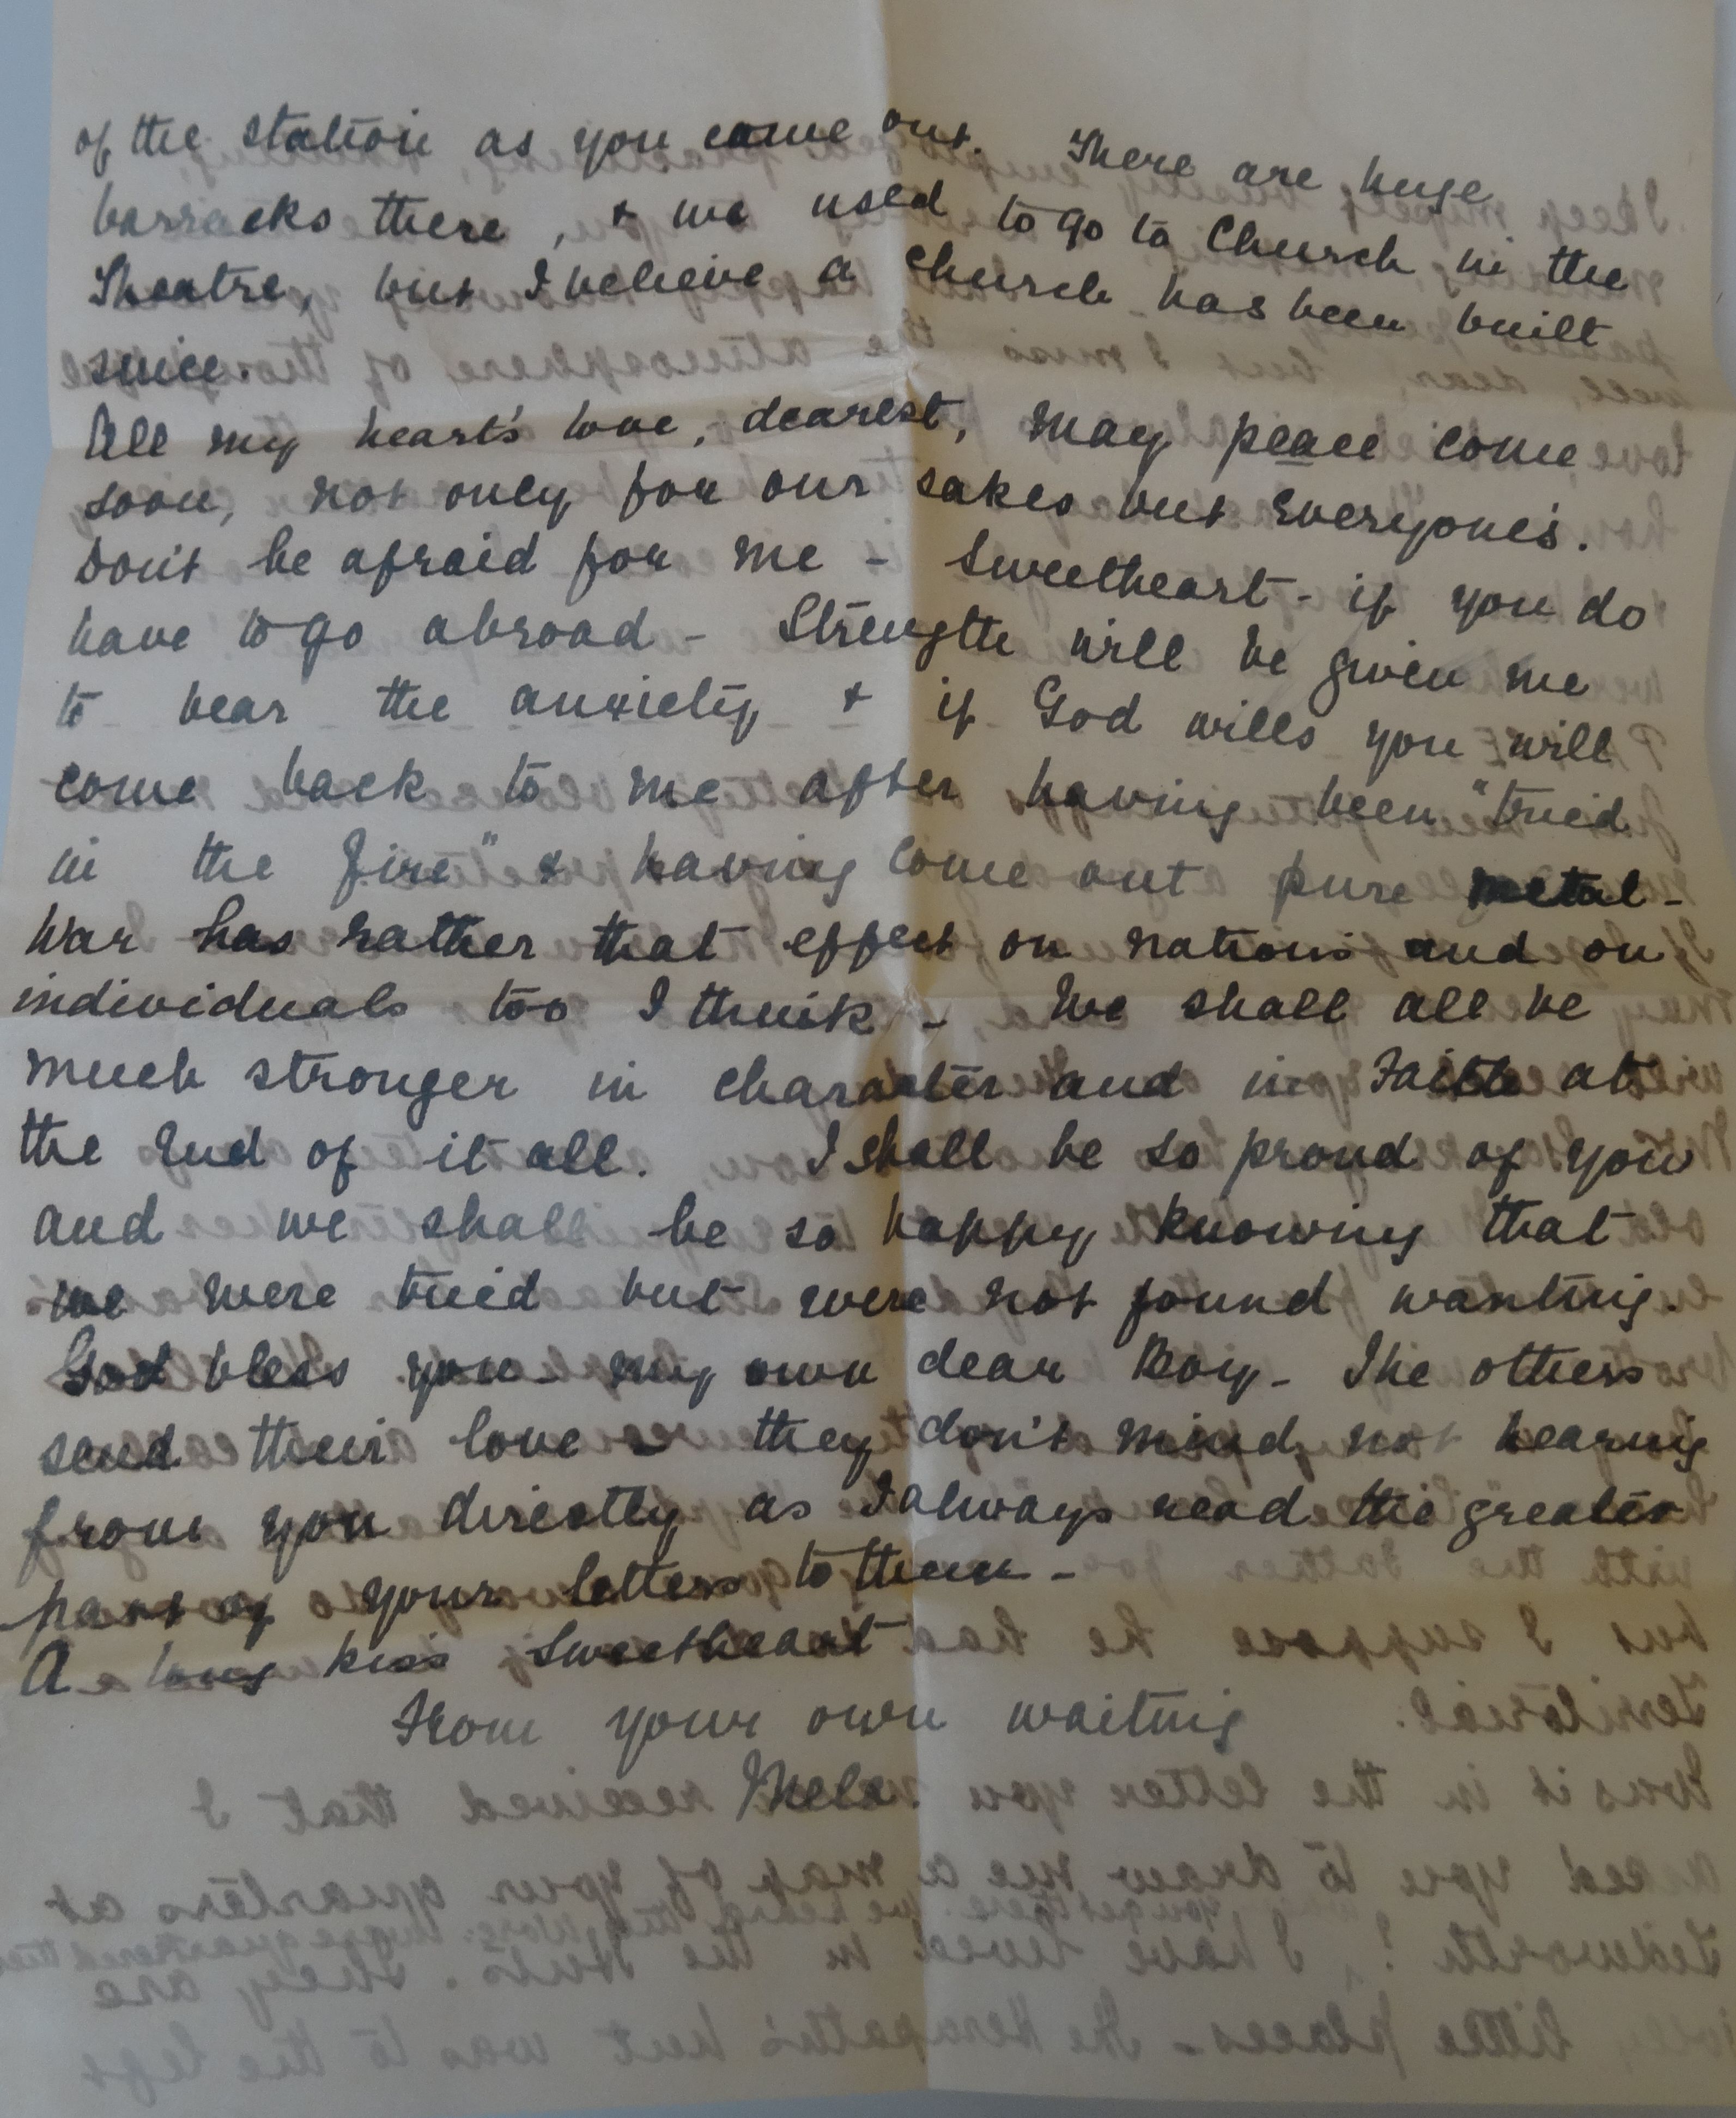 of the station as you come out. There are huge
barracks there, & we used to go to Church in the
Theatre, but I believe a church has been built
since.
All my heart's love, dearest, may peace come
soon, not only for our sakes but everyone's.
Don't be afraid for me - Sweetheart - if you do
have to go abroad - Strength will be given me
to bear the anxiety & if God wills you will
come back to me after having been "tried
in the fire" & having come out pure metal -
War has rather that effect on nations and on
individuals too I think - We shall all be
much stronger in character and in Faith at
the end of it all. I shall be so proud of you
and we shall be so happy knowing that
we were tried but were not found wanting.
God bless you my own dear Boy - The others
send their love - they don't mind not hearing
from you directly as I always read the greater
part of your letters to them -
A long kiss Sweetheart
From your own waiting